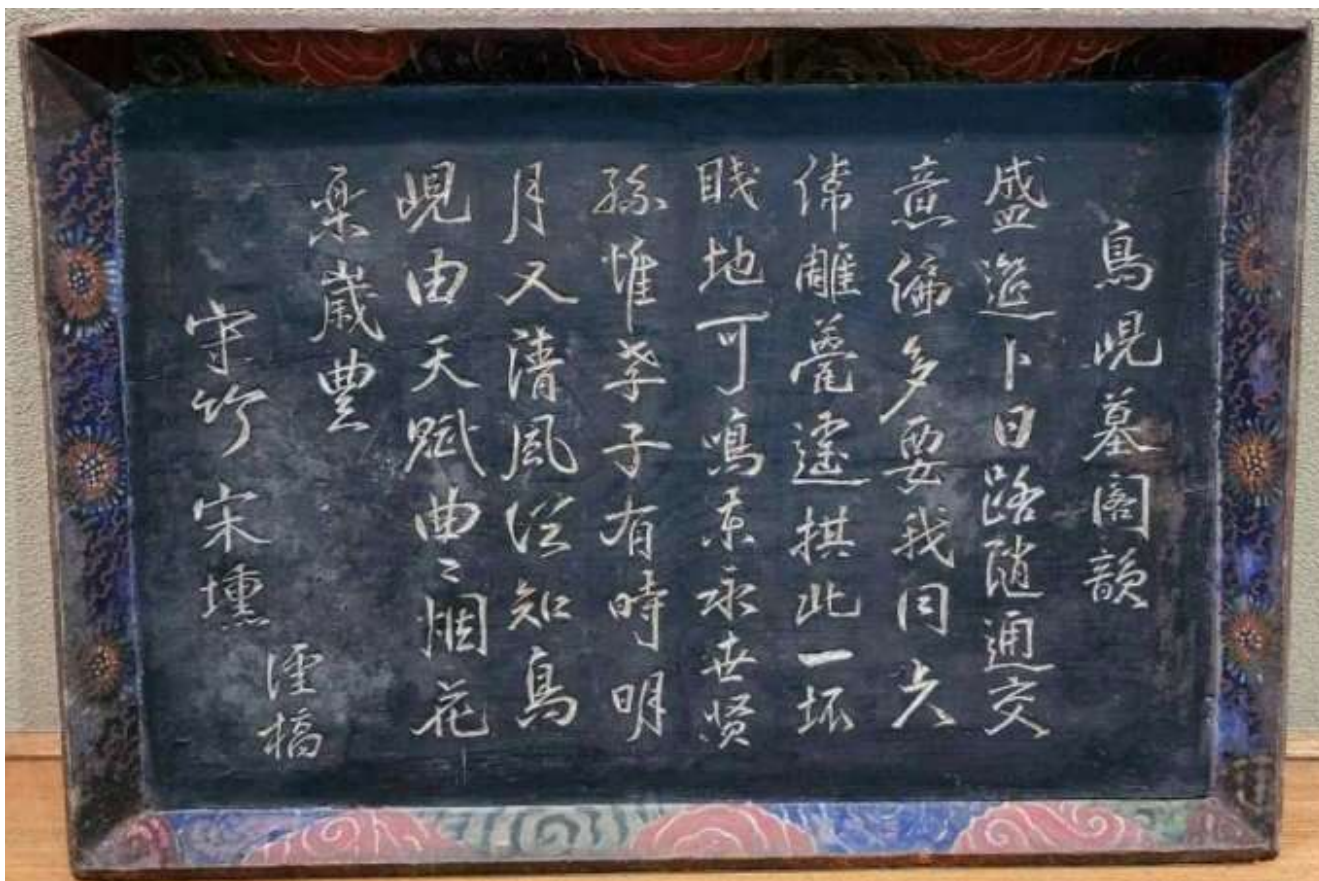 鳥峴墓閣韻
盛筵卜日路隨通交
意偏多要我同六
偉雕甍遙拱此一坏
賤地可鳴東永世賢
孫惟孝子有時明
月又淸風從知鳥
峴由天賦曲〻烟花
樂歲豊
守竹 宋壎
謹稿